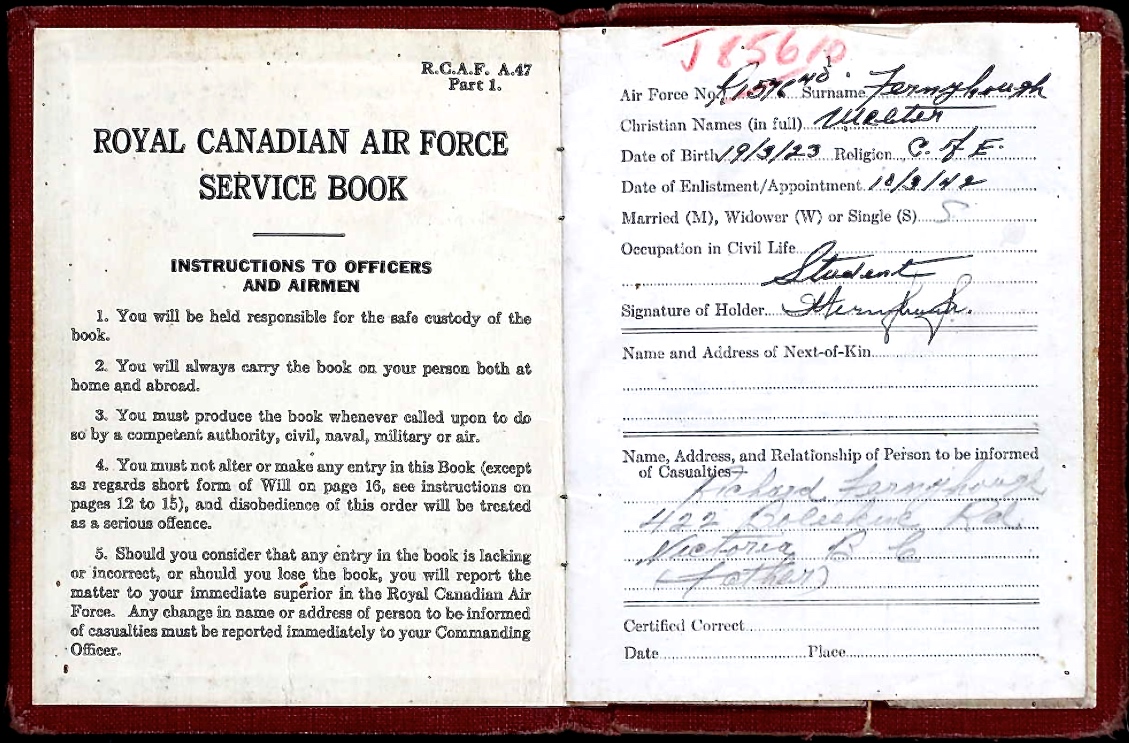 R.C.A.F. A.47
Part 1.
ROYAL CANADIAN AIR FORCE
SERVICE BOOK
INSTRUCTIONS TO OFFICERS
AND AIRMEN
1. You will be held responsible for the safe custody of the
book.
2. You will always carry the book on your person both at
home and abroad.
3. You must produce the book whenever called upon to do
so by a competent authority, civil, naval, military or air.
4. You must not alter or make any entry in this Book (except
as regards short form of Will on page 16, see instructions on
pages 12 to 15), and disobedience of this order will be treated
as a serious offence.
5. Should you consider that any entry in the book is lacking
or incorrect, or should you lose the book, you will report the
matter to your immediate superior in the Royal Canadian Air
Force. Any change in name or address of person to be informed
of casualties must be reported immediately to your Commanding
Officer.
J85610
Air Force No. Surname Fernyhough
Christian Names (in full) Walter
Date of Birth 19/3/23 Religion C. of E.
Date of Enlistment/Appointment 10/3/42
Married (M), Widower (W) or Single (S) S
Occupation in Civil Life
Student
Signature of Holder
Name and Address of Next-of-Kin
Name, Address, and Relationship of Person to be informed
of Casualties—
Richard Fernyhough
422 Boleskine Rd.
Victoria B C
(Father)
Certified Correct
Date Place